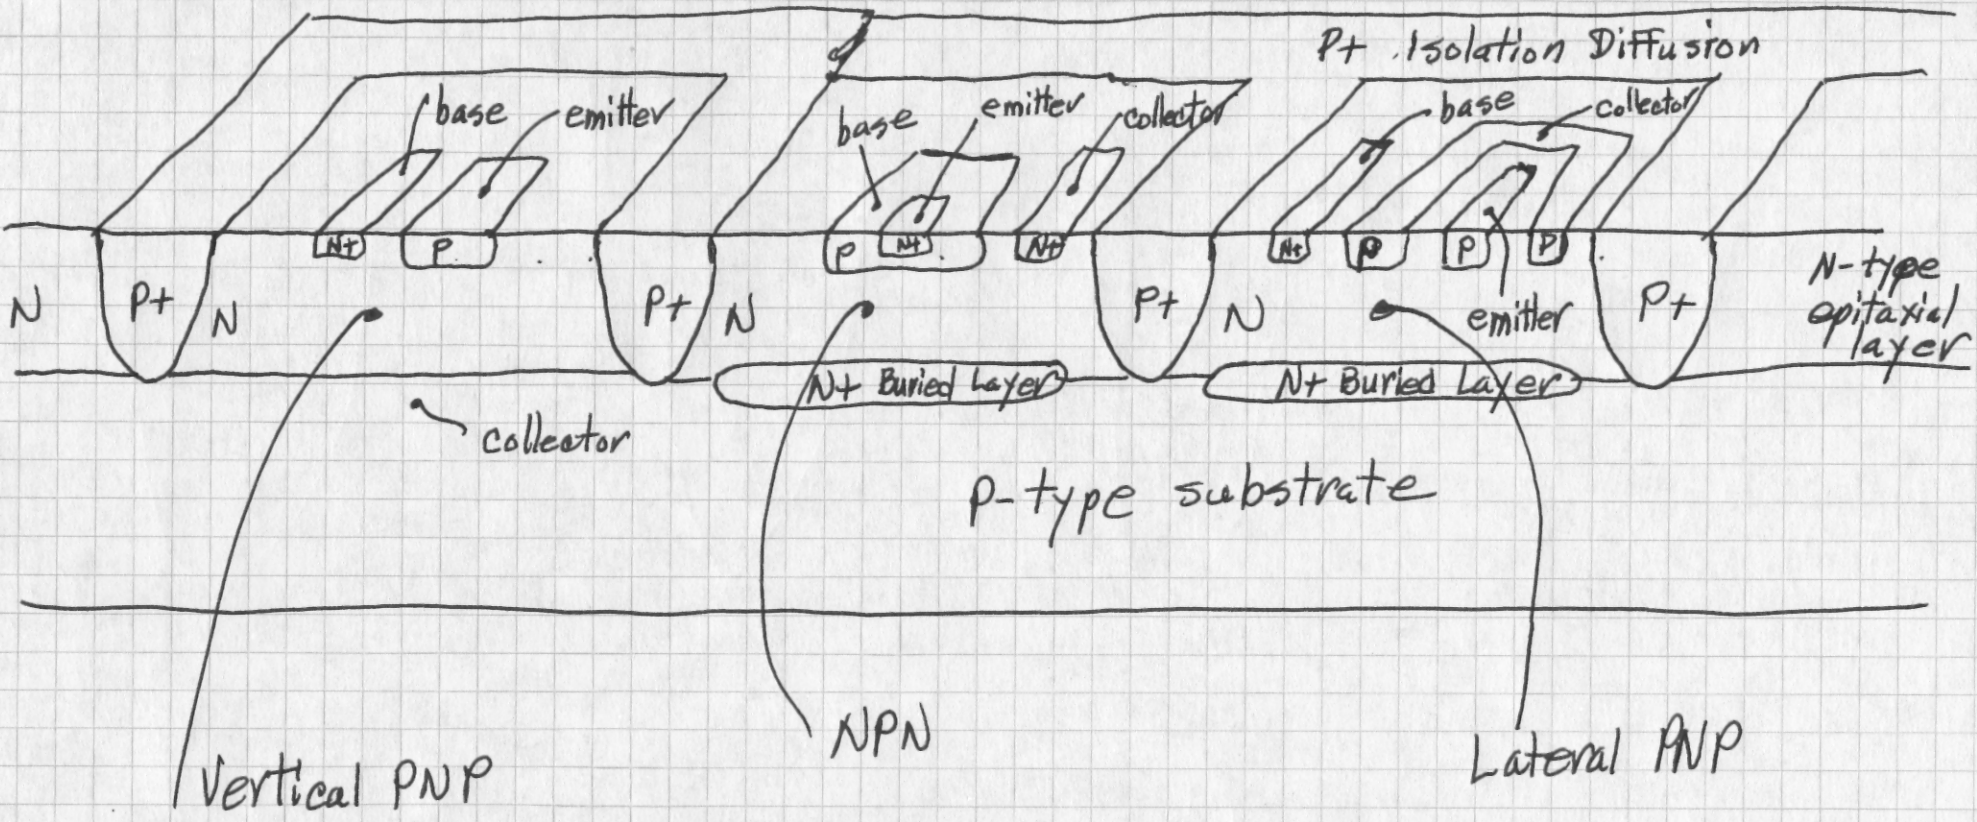 P+ Isolation Diffusion
base
emitter
base
emitter
collector
base
collector
N+
P
P
N+
N+
N+
P
P
P
N
P+
N
P+
N
P+
N
emitter
P+
N-type
epitaxial
layer
N+ Buried Layer
N+ Buried Layer
collector
P-type substrate
Vertical PNP
NPN
Lateral PNP